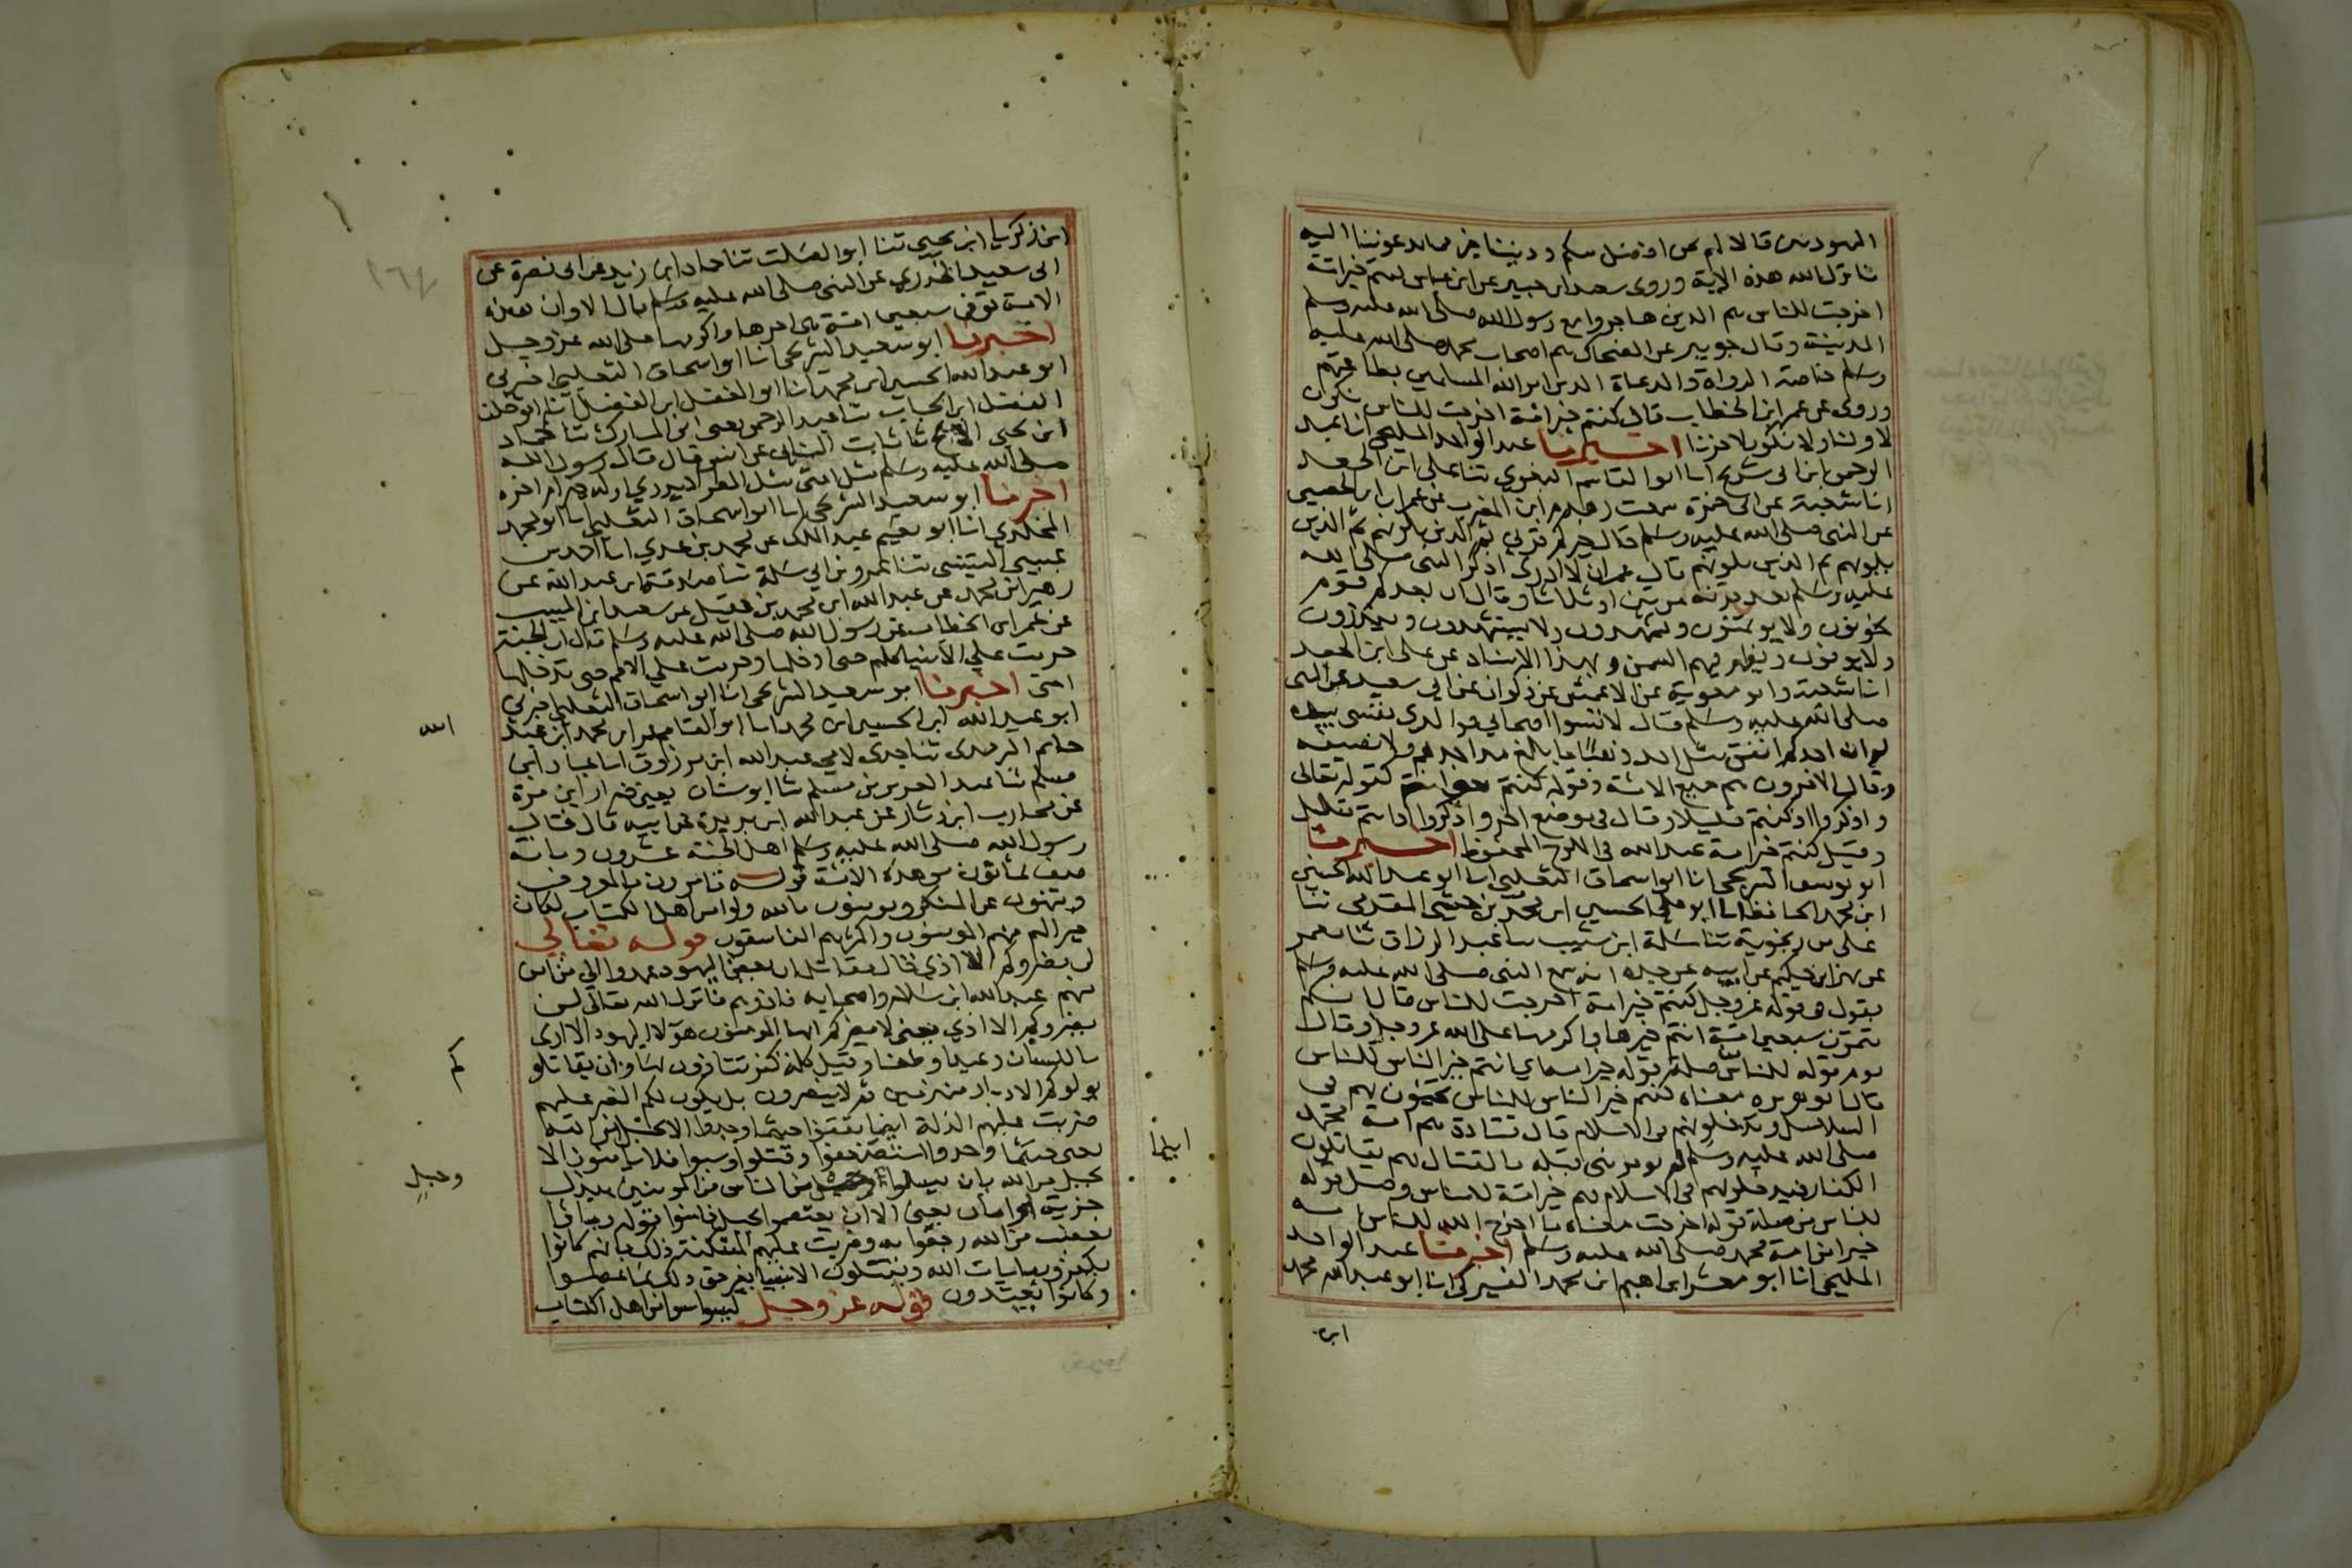 اليهوديين قالا لهم نحن افضل منكم وديننا خير مما تدعوننا اليه
فانزل الله هذه الاية وروى سعيد ابن جبير عن ابن عباس كنتم خير امة
اخرجت للناس هم الذين هاجروا مع رسول الله صلى الله عليه وسلم
المدينة وقال جويبر عن الضحاك هم اصحاب محمد صلى الله عليه
وسلم خاصة الرواة والدعاة الذين امر الله المسلمين بطاعتهم
وروى عن عمر ابن الخطاب قال كنتم خير امة اخرجت للناس تكون
لاولنا ولا تكون لاخرنا اخبرنا عبد الواحد المليحي انا عبد
الرحمن ابن ابي شريح انا ابو القاسم البغوي ثنا علي ابن الجعد
انا شعبة عن ابي حمزة سمعت زهدم ابن المضرب عن عمران ابن الحصين
عن النبي صلى الله عليه وسلم قال خيركم قرني ثم الذين يلونهم ثم الذين
يلونهم ثم الذين يلونهم قال عمران لا ادري اذكر النبي صلى الله
عليه وسلم بعد قرنه مرتين او ثلاثا وقال ان بعدكم قوم
يخونون ولا يؤتمنون ويشهدون ولا يستشهدون وينذرون
ولا يوفون ويظهر فيهم السمن وبهذا الاسناد عن علي ابن الجعد
انا شعبة وابو معوية عن الاعمش عن ذكوان عن ابي سعيد عن النبي
صلى الله عليه وسلم قال لا تسبوا اصحابي فوالذي نفسي بيده
لو ان احدكم انفق مثل احد ذهبا ما بلغ مد احدهم ولا نصيفه
وقال الاخرون هم جميع الامة وقوله كنتم خير امة كقوله تعالى
واذكروا اذ كنتم قليلا وقال في موضع اخر واذكروا اذ انتم قليل
وقيل كنتم خير امة عند الله في اللوح المحفوظ اخبرنا
ابو سعيد الشريحي انا ابو اسحاق الثعلبي انا ابو عبد الله الحسين
ابن محمد الحافظ انا ابو علي الحسين ابن محمد بن حبشي المقدمي ثنا
علي بن زنجوية ثنا سلمة ابن شبيب ثنا عبد الرزاق ثنا معمر
عن بهز ابن حكيم عن ابيه عن جده انه سمع النبي صلى الله عليه وسلم
يقول في قوله عز وجل كنتم خير امة اخرجت للناس قال انكم
تتمون سبعين امة انتم خيرها واكرمها على الله عز وجل وقال
قوم قوله للناس صلة قوله خير امة اي انتم خير الناس للناس
قال ابو هريرة معناه كنتم خير الناس للناس تجيؤن بهم في
السلاسل وتدخلونهم في الاسلام قال قتادة هم امة محمد
صلى الله عليه وسلم لم يؤمر نبي قبله بالقتال هم يقاتلون
الكفار فيدخلونهم في الاسلام فهم خير امة للناس وقيل قوله
للناس من صلة قوله اخرجت معناه ما اخرج الله للناس امة
خيرا من امة محمد صلى الله عليه وسلم اخبرنا عبد الواحد
المليحي انا ابو معشر ابراهيم ابن محمد الفيركي انا ابو عبد الله محمد
ابن
ابن زكريا ابن يحيى ثنا ابو الصلت ثنا حماد ابن زيد عن ابي نضرة عن
ابي سعيد الخدري عن النبي صلى الله عليه وسلم قال الا وان هذه
الامة توفي سبعين امة هي اخرها واكرمها على الله عز وجل
اخبرنا ابو سعيد الشريحي انا ابو اسحاق الثعلبي اخبرني
ابو عبد الله الحسين ابن محمد انا ابو الفضل ابن الفضل انا ابو خليفة
الفضل ابن الحباب ثنا عبد الرحمن يعني ابن المبارك ثنا حماد
ابن يحيى الابح ثنا ثابت البناني عن انس قال قال رسول الله
صلى الله عليه وسلم مثل امتي مثل المطر لا يدري اوله خير ام اخره
اخبرنا ابو سعيد الشريحي انا ابو اسحاق الثعلبي انا ابو محمد
المخلدي انا ابو نعيم عبد الملك بن محمد بن عدي انا احمد بن
عيسى التنيسي ثنا عمرو بن ابي سلمة ثنا صدقة ابن عبد الله عن
زهير ابن محمد عن عبد الله ابن محمد بن عقيل عن سعيد ابن المسيب
عن عمر ابن الخطاب عن رسول الله صلى الله عليه وسلم قال ان الجنة
حرمت على الانبيا كلهم حتى ادخلها وحرمت على الامم حتى تدخلها
امتي اخبرنا ابو سعيد الشريحي انا ابو اسحاق الثعلبي اخبرني
ابو عبد الله ابن الحسين ابن محمد انا ابو القاسم عمر ابن محمد ابن عبد
الله
حاتم الترمذي ثنا جدي لامي عبد الله ابن مرزوق انا عفان ابن
مسلم ثنا عبد العزيز بن مسلم ثنا ابو سنان يعني ضرار ابن مرة
عن محارب ابن دثار عن عبد الله ابن بريدة عن ابيه قال قال
رسول الله صلى الله عليه وسلم اهل الجنة عشرون ومائة
صف ثمانون من هذه الامة قوله تامرون بالمعروف
وتنهون عن المنكر وتؤمنون بالله ولو امن اهل الكتاب لكان
خيرا لهم منهم المؤمنون واكثرهم الفاسقون قوله تعالى
لن يضروكم الا اذى قال مقاتل ان بعض اليهود عمدوا الى من امن
منهم عبد الله ابن سلام واصحابه فاذوهم فانزل الله تعالى لن
يضروكم الا اذى يعني لا يضركم ايها المؤمنون هؤلا اليهود الا اذى
باللسان وعيدا وطعنا وقيل كلمة كفر تتاذون بها وان يقاتلو
كم
يولوكم الادبار منهزمين ثم لا ينصرون بل يكون لكم النصر عليهم
ضربت عليهم الذلة اينما ثقفوا حيثما وجدوا الا بحبل من الله
اينما
يعني حيثما وجدوا استضعفوا وقتلوا وسبوا فلا يامنون الا
بحبل من الله بان يسلموا وحبل من الناس من المؤمنين ببذل
وحبلٍ
جزية او امان يعني الا ان يعتصموا بحبل فيامنوا قوله وباؤا
بغضب من الله رجعوا به وضربت عليهم المسكنة ذلك بانهم كانوا
يكفرون بايات الله ويقتلون الانبيا بغير حق ذلك بما عصوا
وكانوا يعتدون قوله عز وجل ليسوا سوا من اهل الكتاب
١٦٧